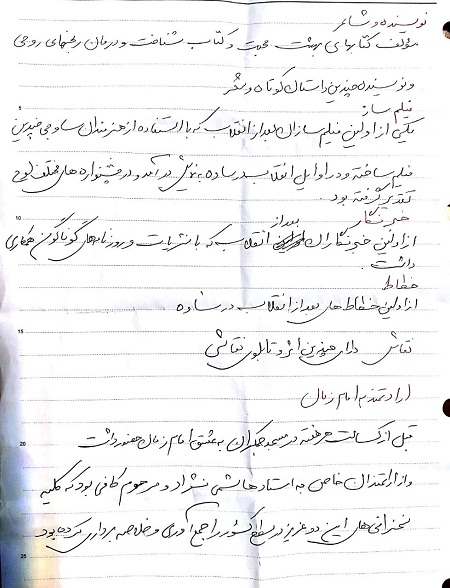 نویسنده و شاعر
مؤلف کتابهای بهشت محبت و کتاب شناخت و درمان رنجهای روحی
و نویسنده چندین داستان کوتاه و شعر
5
فیلم ساز
یکی از اولین فیلم سازان بعد از انقلاب که با استفاده از هنرمندان ساوجی چندین
فیلم ساخته و در اوایل انقلاب در ساوه به نمایش در آمد و در جشنواره های مختلف لوح
تقدیر گرفته بود.
10
خبرنگار
بعد از
از اولین خبرنگاران انقلاب که با نشریات و روزنامه های گوناگون همکاری
داشت.
خطاط
از اولین خطاط های بعد از انقلاب در ساوه
15
نقاش دارای چندین اثر و تابلوی نقاشی
ارادتمند به امام زمان
20
قبل از کسالت هر هفته در مسجد جمکران به عشق امام زمان حضور داشت
و از ارادتمندان خاص به استاد هاشمی نژاد و مرحوم کافی بود که کلیه
سخنرانی های این دو عزیز در سطح کشور را جمع آوری و خلاصه برداری کرده بود
25